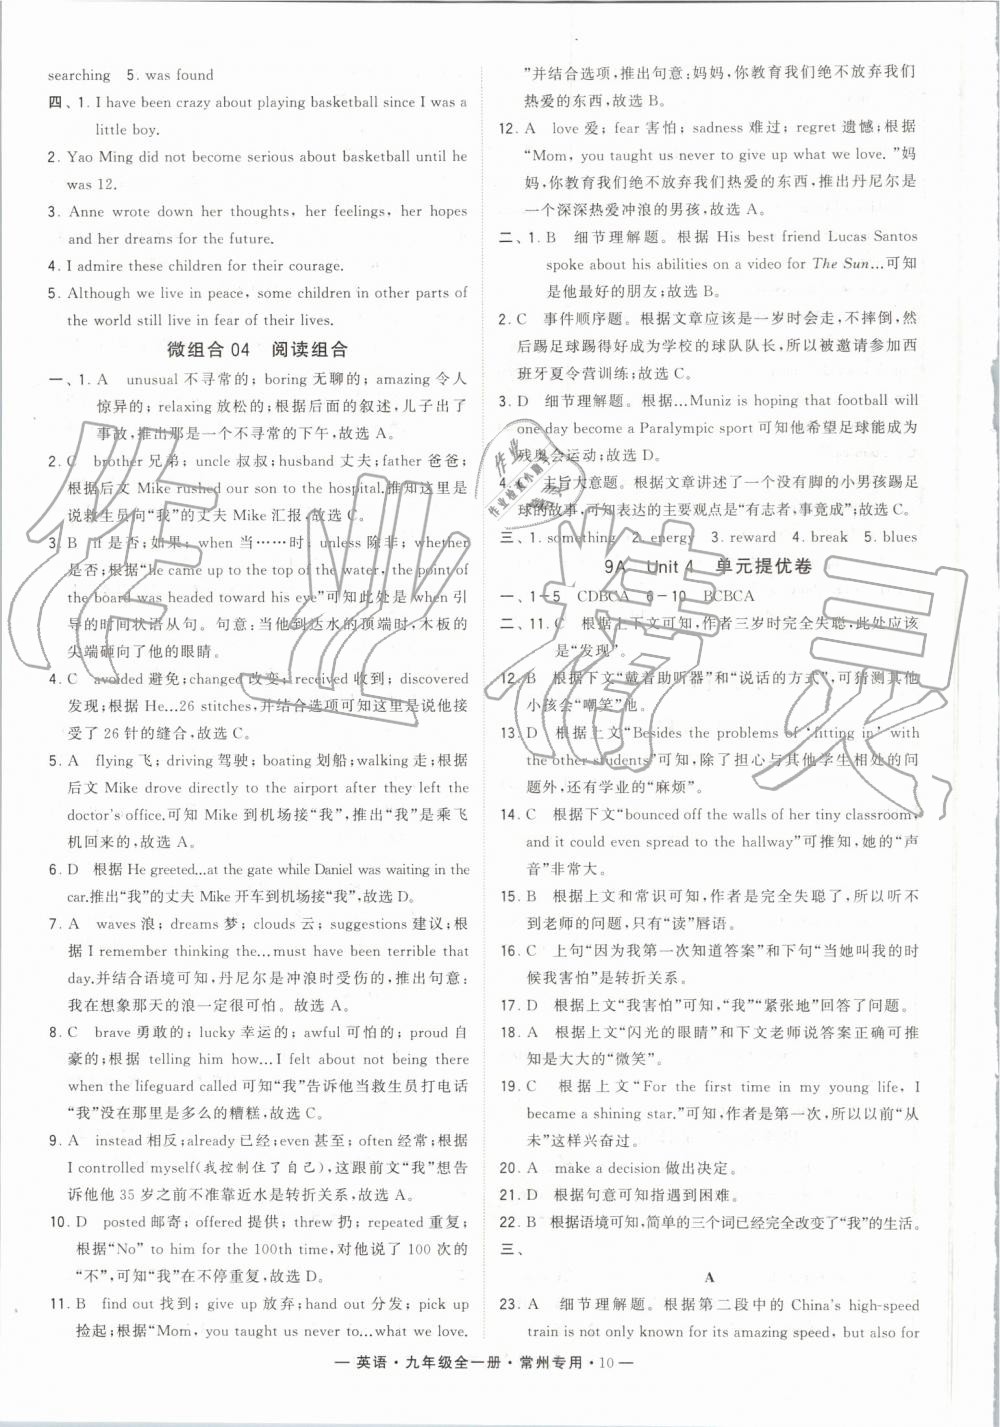 searching　5. was found
四、1. I have been crazy about playing basketball since I was a
little boy.
2. Yao Ming did not become serious about basketball until he
was 12.
3. Anne wrote down her thoughts, her feelings, her hopes
and her dreams for the future.
4. I admire these children for their courage.
5. Although we live in peace, some children in other parts of
the world still live in fear of their lives.
微组合 04　阅读组合
一、1. A　unusual 不寻常的; boring 无聊的; amazing 令人
惊异的; relaxing 放松的;根据后面的叙述,儿子出了
事故,推出那是一个不寻常的下午,故选 A。
2. C　brother 兄弟; uncle 叔叔;husband 丈夫;father 爸爸;
根据后文 Mike rushed our son to the hospital.推出这里是
说救生员向“我”的丈夫 Mike 汇报,故选 C。
3. B　if 是否;如果; when 当……时; unless 除非; whether
是否;根据“He came up to the top of the water, the point of
the board was headed toward his eye”可知此处是 when 引
导的时间状语从句。句意:当他到达水的顶端时,木板的
尖端砸向了他的眼睛。
4. C　avoided 避免;changed 改变; received 收到; discovered
发现;根据 He…26 stitches,并结合选项可知这里是说他接
受了 26 针的缝合,故选 C。
5. A　flying 飞; driving 驾驶; boating 划船;walking 走;根据
后文 Mike drove directly to the airport after they left the
doctor's office.可知 Mike 到机场接“我”,推出“我”是乘飞
机回来的,故选 A。
6. D　根据 He greeted…at the gate while Daniel was waiting in the
car.推出“我”的丈夫 Mike 开车到机场接“我”,故选 D。
7. A　waves 浪; dreams 梦; clouds 云; suggestions 建议;根
据 I remember thinking the…must have been terrible that
day.并结合语境可知,丹尼尔是冲浪时受伤的,推出句意:
我在想象那天的浪一定很可怕。故选 A。
8. C　brave 勇敢的; lucky 幸运的; awful 可怕的; proud 自
豪的;根据 telling him how…I felt about not being there
when the lifeguard called 可知“我”告诉他当救生员打电话
“我”没在那里是多么的糟糕,故选 C。
9. A　instead 相反;already 已经;even 甚至; often 经常;根据
I controlled myself(我控制住了自己),这跟前文“我”想告
诉他他 35 岁之前不准靠近水是转折关系,故选 A。
10. D　posted 邮寄; offered 提供; threw 扔; repeated 重复;
根据“No” to him for the 100th time,对他说了 100 次的
“不”,可知“我”在不停重复,故选 D。
11. B　find out 找到; give up 放弃;hand out 分发; pick up
捡起;根据“Mom, you taught us never to…what we love.
”并结合选项,推出句意:妈妈,你教育我们绝不放弃我们
热爱的东西,故选 B。
12. A　love 爱; fear 害怕; sadness 难过; regret 遗憾;根据
“Mom, you taught us never to give up what we love. ”妈
妈,你教育我们绝不放弃我们热爱的东西,推出丹尼尔是
一个深深热爱冲浪的男孩,故选 A。
二、1. B　细节理解题。根据 His best friend Lucas Santos
spoke about his abilities on a video for The Sun…可知
是他最好的朋友;故选 B。
2. C　事件顺序题。根据文章应该是一岁时会走,不摔倒,然
后踢足球踢得好成为学校的球队队长,所以被邀请参加西
班牙夏令营训练;故选 C。
3. D　细节理解题。根据…Muniz is hoping that football will
one day become a Paralympic sport 可知他希望足球能成为
残奥会运动;故选 D。
4. 主旨大意题。根据文章讲述了一个没有脚的小男孩踢足
球的故事,可知表达的主要观点是“有志者,事竟成”,故选 C。
三、1. something　2. energy　3. reward　4. break　5. blues
9A　Unit 4　单元提优卷
一、1－5　CDBCA　6－10　BCBCA
二、11. C　根据上下文可知,作者三岁时完全失聪,此处应该
是“发现”。
12. B　根据下文“戴着助听器”和“说话的方式”,可猜测其他
小孩会“嘲笑”他。
13. D　根据上文“Besides the problems of ‘fitting in’ with
the other students”可知,除了担心与其他学生相处的问
题外,还有学业的“麻烦”。
14. C　根据下文“bounced off the walls of her tiny classroom,
and it could even spread to the hallway”可推知,她的“声
音”非常大。
15. B　根据上文和常识可知,作者是完全失聪了,所以听不
到老师的问题,只有“读”唇语。
16. C　上句“因为我第一次知道答案”和下句“当她叫我的时
候我害怕”是转折关系。
17. D　根据上文“我害怕”可知,“我”“紧张地”回答了问题。
18. A　根据上文“闪光的眼睛”和下文老师说答案正确可推
知是大大的“微笑”。
19. C　根据上文“For the first time in my young life, I
became a shining star.”可知,作者是第一次,所以以前“从
未”这样兴奋过。
20. A　make a decision 做出决定。
21. D　根据句意可知指遇到困难。
22. B　根据语境可知,简单的三个词已经完全改变了“我”的生活。
三、
A
23. A　细节理解题。根据第二段中的 China's high-speed
train is not only known for its amazing speed, but also for
— 英语·九年级全一册·常州专用·10 —